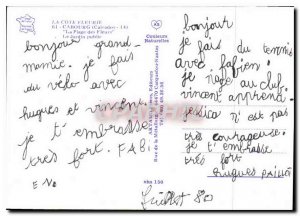 LA COTE FLEURIE
61 - CABOURG (Calvados - 14)
"La Plage des Fleurs"
Le Jardin public
Couleurs
Naturelles
bonjour grand-
mamie. je fais
du vélo avec
hugues et vincent.
je t'embrasse
très fort. FABI
bonjour
je fais du tennis
avec fabien.
je nage au club.
vincent apprend.
jessica n'est pas
très courageuse.
je t'embrasse
très fort
hugues
juillet 80